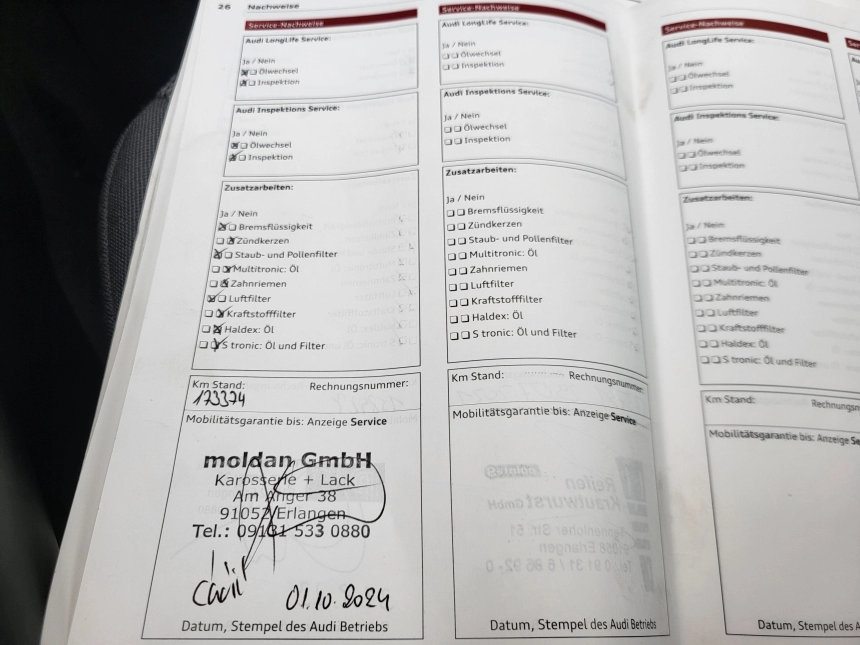 26 Nachweise
Service-Nachweise
Audi LongLife Service:
Ja / Nein
Ölwechsel
Inspektion
Audi Inspektions Service:
Ja / Nein
Ölwechsel
Inspektion
Zusatzarbeiten:
Ja / Nein
Bremsflüssigkeit
Zündkerzen
Staub- und Pollenfilter
Multitronic: Öl
Zahnriemen
Luftfilter
Kraftstofffilter
Haldex: Öl
S tronic: Öl und Filter
Km Stand: Rechnungsnummer:
173374
Mobilitätsgarantie bis: Anzeige Service
moldan GmbH
Karosserie + Lack
Am Anger 38
91052 Erlangen
Tel.: 09131 533 0880
01.10.2024
Datum, Stempel des Audi Betriebs
Service-Nachweise
Audi LongLife Service:
Ja / Nein
Ölwechsel
Inspektion
Audi Inspektions Service:
Ja / Nein
Ölwechsel
Inspektion
Zusatzarbeiten:
Ja / Nein
Bremsflüssigkeit
Zündkerzen
Staub- und Pollenfilter
Multitronic: Öl
Zahnriemen
Luftfilter
Kraftstofffilter
Haldex: Öl
S tronic: Öl und Filter
Km Stand: Rechnungsnummer:
Mobilitätsgarantie bis: Anzeige Service
Reifen
Krautwurst GmbH
Datum, Stempel des Audi Betriebs
Service-Nachweise
Audi LongLife Service:
Ja / Nein
Ölwechsel
Inspektion
Audi Inspektions Service:
Ja / Nein
Ölwechsel
Inspektion
Zusatzarbeiten:
Ja / Nein
Bremsflüssigkeit
Zündkerzen
Staub- und Pollenfilter
Multitronic: Öl
Zahnriemen
Luftfilter
Kraftstofffilter
Haldex: Öl
S tronic: Öl und Filter
Km Stand: Rechnungsn
Mobilitätsgarantie bis: Anzeige Se
Datum, Stempel des A